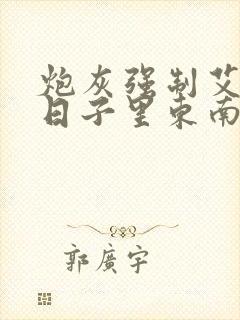 炮灰强制艾
日子里东南
郭廣宇